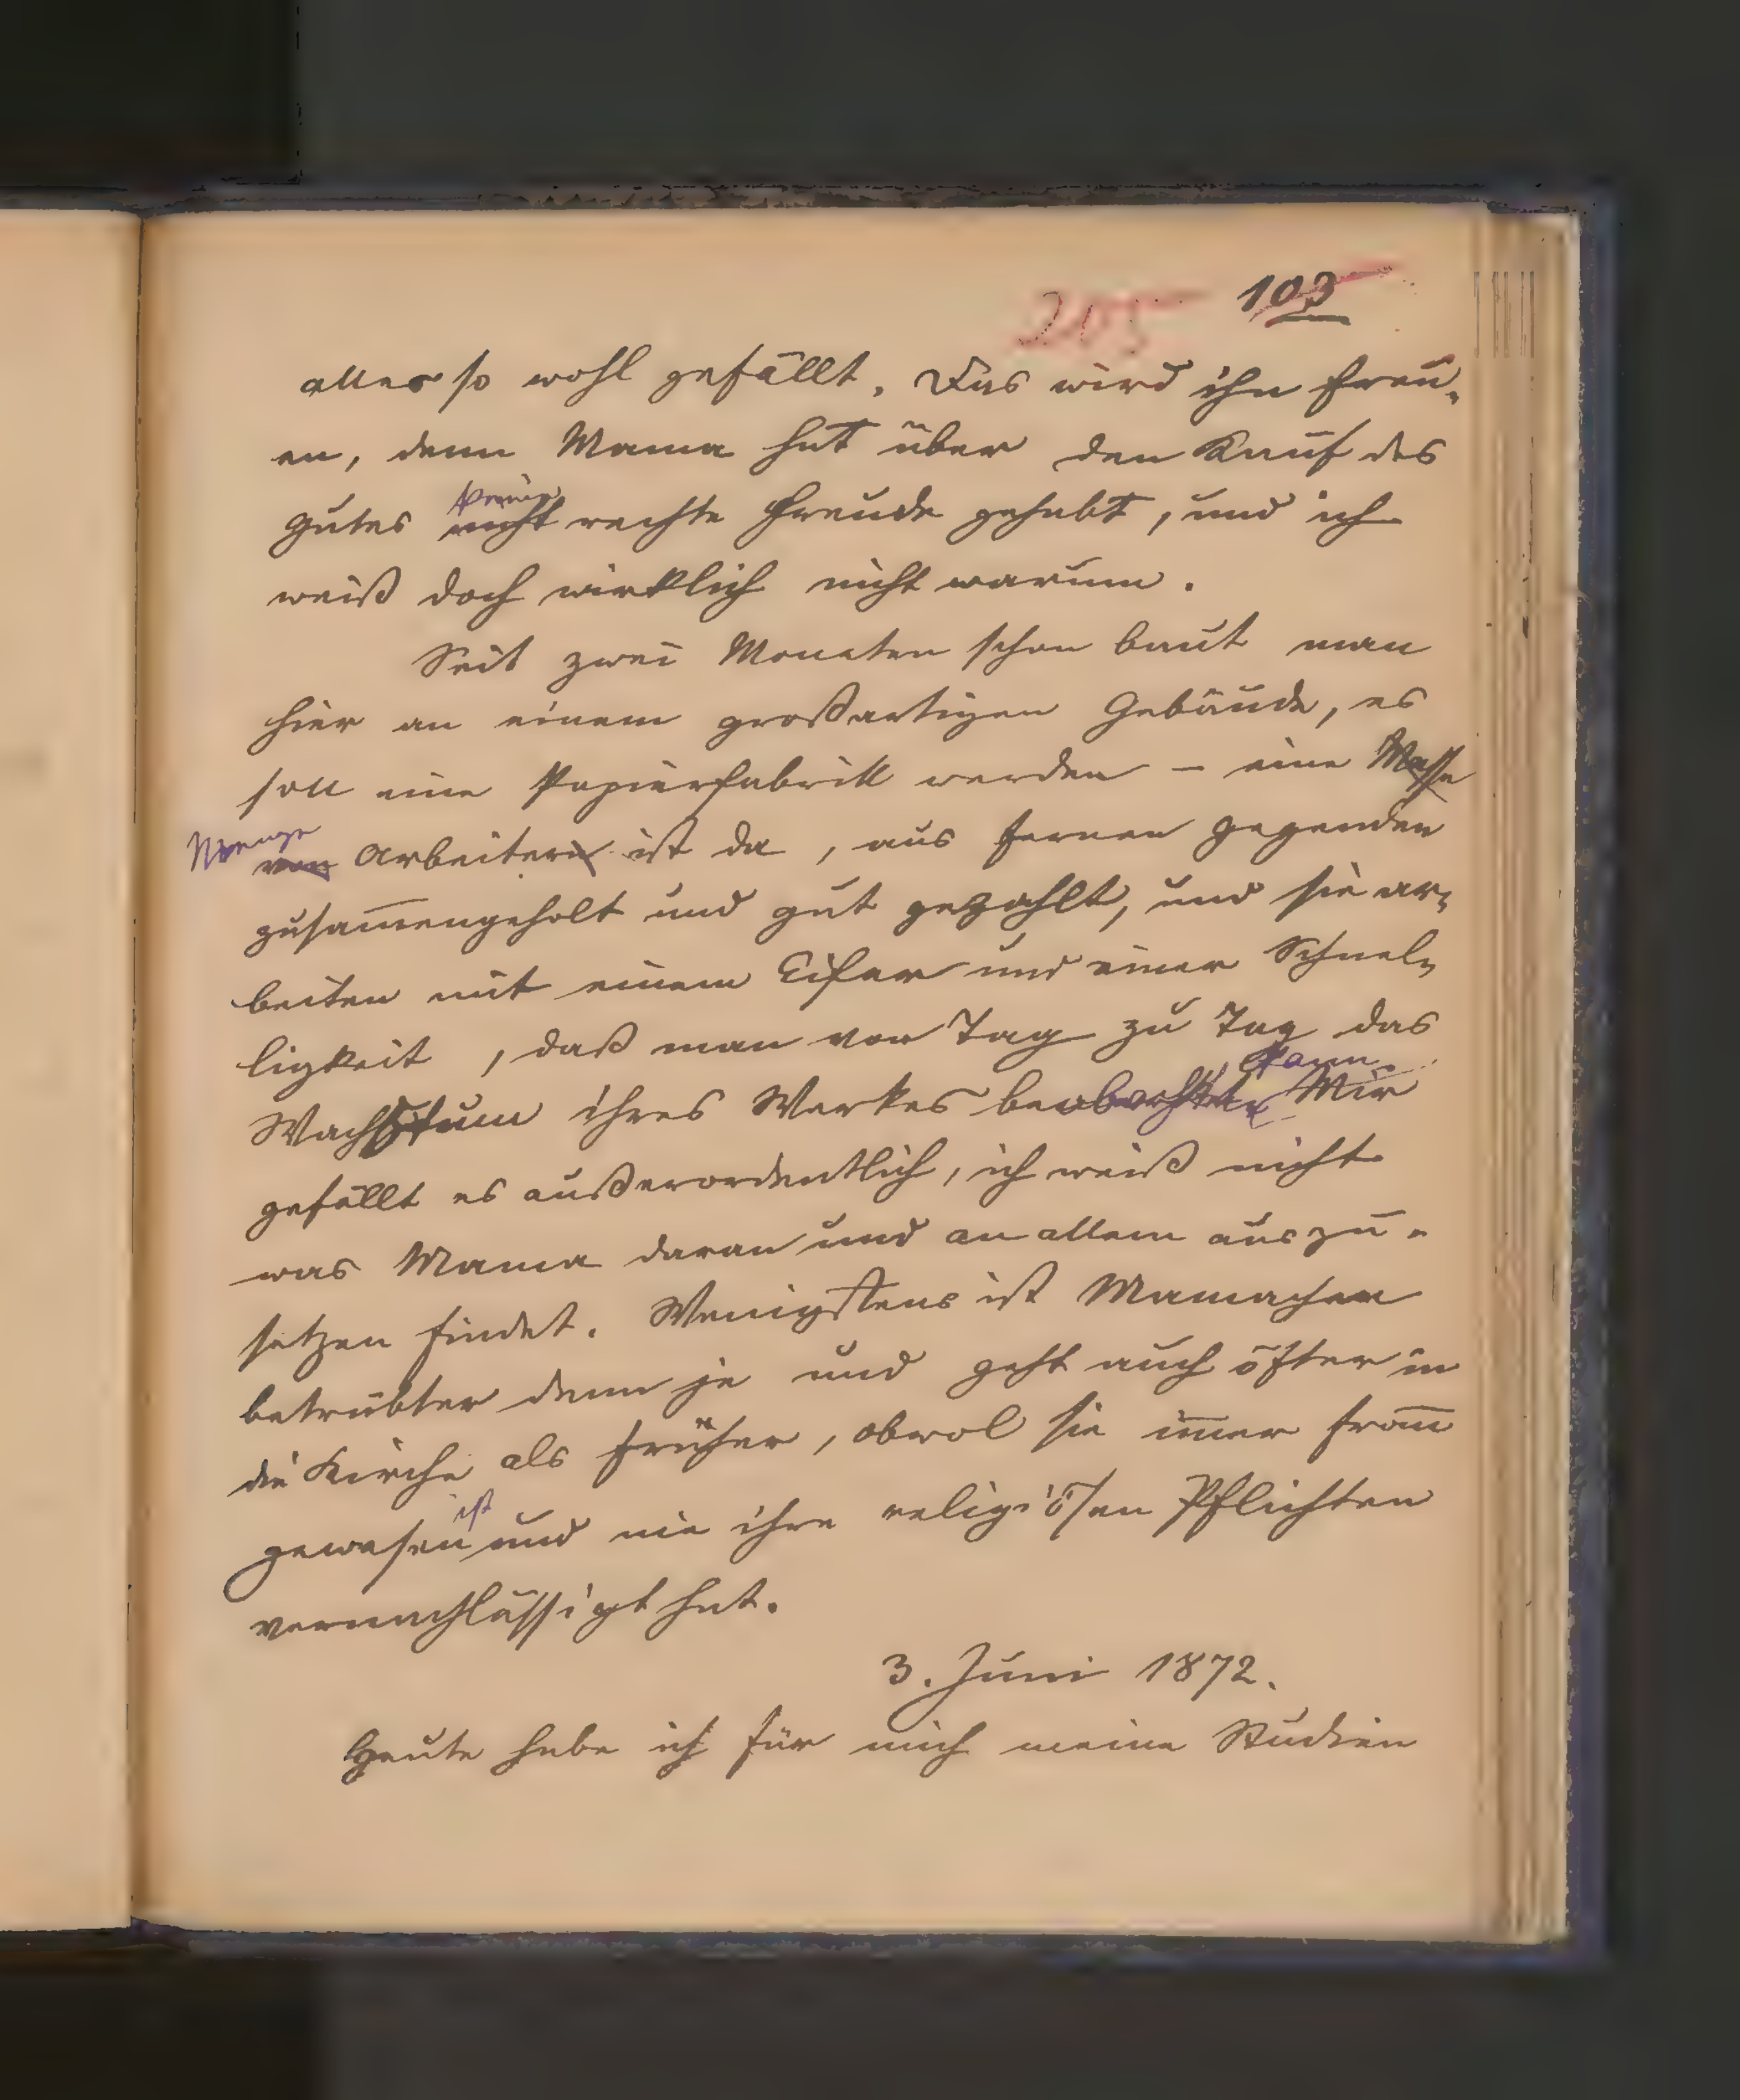 205 103
alles so wohl gefällt. Das wird ihn freu-
en, denn Mama hat über den Kauf des
Gutes nicht rechte Freude gehabt, und ich
weiß doch wirklich nicht warum.
Seit zwei Monaten schon baut man
hier an einem großartigen Gebäude, es
soll eine Papierfabrik werden – eine Masse
Menge
von Arbeitern ist da, aus fernen Gegenden
zusam̄engeholt und gut gezahlt, und sie ar-
beiten mit einem Eifer und einer Schnel-
ligkeit, daß man von Tag zu Tag das
kann
Wachstum ihres Werkes beobachten Mir
gefällt es außerordentlich, ich weiß nicht
was Mama daran und an allem auszu-
setzen findet. Wenigstens ist Mamachen
betrübter denn je und geht auch öfter in
die Kirche als früher, obwol sie im̄er from̄
ist
gewesen und nie ihre religiösen Pflichten
vernachlässigt hat.
3. Juni 1872.
Heute habe ich für mich meine Studien